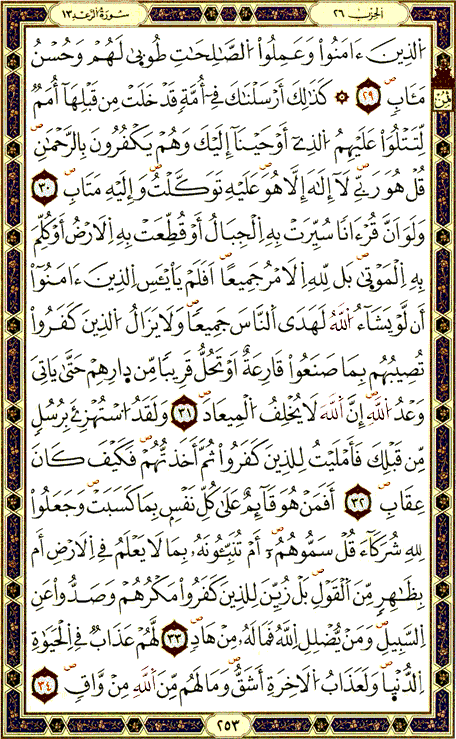 سُورَةُ الرَّعْد ١٣
الحِزْب ٢٦
اَلذِينَ ءَامَنُواْ وَعَمِلُواْ الصَّٰلِحَٰتِ طُوبۭىٰ لَهُمْ وَحُسْنُ
ثمن
مَـَٔابٖ ٢٩ ۞ كَذَٰلِكَ أَرْسَلْنَٰكَ فِےٓ أُمَّةٖ قَدْ خَلَتْ مِن قَبْلِهَآ أُمَمٞ
لِّتَتْلُوَاْ عَلَيْهِمُ الذِےٓ أَوْحَيْنَآ إِلَيْكَ وَهُمْ يَكْفُرُونَ بِالرَّحْمَٰنِ
قُلْ هُوَ رَبِّے لَآ إِلَٰهَ إِلَّا هُوَ عَلَيْهِ تَوَكَّلْتُ وَإِلَيْهِ مَتَابِ ٣٠
وَلَوَ اَنَّ قُرْءَاناٗ سُيِّرَتْ بِهِ اِلْجِبَالُ أَوْ قُطِّعَتْ بِهِ اِلَارْضُ أَوْ كُلِّمَ
بِهِ اِلْمَوْتۭىٰ بَل لِّلهِ اِلَامْرُ جَمِيعاًۖ اَفَلَمْ يَاْيْـَٔسِ اِلذِينَ ءَامَنُوٓاْ
أَن لَّوْ يَشَآءُ اُللَّهُ لَهَدَى اَلنَّاسَ جَمِيعاٗۖ وَلَا يَزَالُ اُلذِينَ كَفَرُواْ
تُصِيبُهُم بِمَا صَنَعُواْ قَارِعَةٌ اَوْ تَحُلُّ قَرِيباٗ مِّن دِارِهِمْ حَتَّىٰ يَاتِيَ
وَعْدُ اُللَّهِۖ إِنَّ اَللَّهَ لَا يُخْلِفُ اُلْمِيعَادَ ٣١ وَلَقَدُ اُسْتُهْزِۓَ بِرُسُلٖ
مِّن قَبْلِكَ فَأَمْلَيْتُ لِلذِينَ كَفَرُواْ ثُمَّ أَخَذتُّهُمْ فَكَيْفَ كَانَ
عِقَابِۖ ٣٢ أَفَمَنْ هُوَ قَآئِمٌ عَلَىٰ كُلِّ نَفْسِۢ بِمَا كَسَبَتْۖ وَجَعَلُواْ
لِلهِ شُرَكَآءَۖ قُلْ سَمُّوهُمُۥٓۖ أَمْ تُنَبِّـُٔونَهُۥ بِمَا لَا يَعْلَمُ فِے اِلَارْضِ أَم
بِظَٰهِرٖ مِّنَ اَلْقَوْلِۖ بَلْ زُيِّنَ لِلذِينَ كَفَرُواْ مَكْرُهُمْ وَصَدُّواْ عَنِ
اِلسَّبِيلِۖ وَمَنْ يُّضْلِلِ اِللَّهُ فَمَا لَهُۥ مِنْ هَادٖۖ ٣٣ لَّهُمْ عَذَابٞ فِے اِلْحَيَوٰةِ
اِلدُّنْيۭاۖ وَلَعَذَابُ اُلَاخِرَةِ أَشَقُّۖ وَمَا لَهُم مِّنَ اَللَّهِ مِنْ وَّاقٖۖ ٣٤
٢٥٣